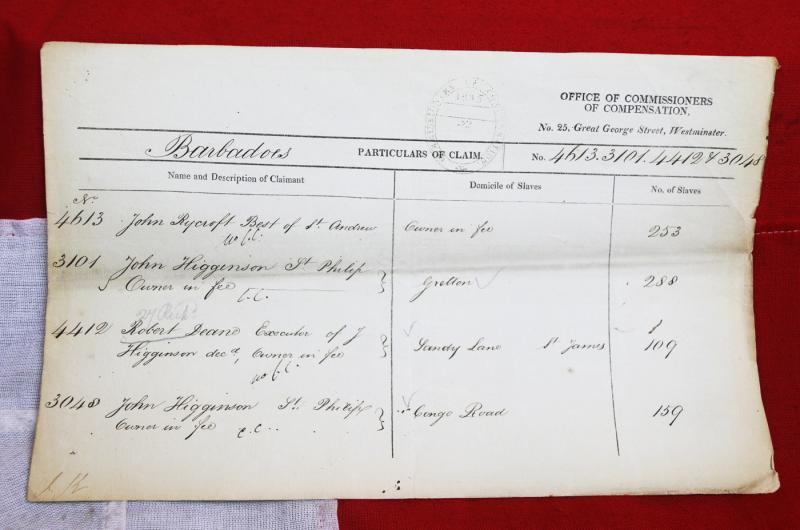 OFFICE OF COMMISSIONERS
OF COMPENSATION,
No. 25, Great George Street, Westminster.
Barbadoes PARTICULARS OF CLAIM. No. 4613.3101.4412 & 3048
Name and Description of Claimant Domicile of Slaves No. of Slaves
No.
4613 John Rycroft Best of St. Andrew Owner in fee 253
3101 John Higginson St Philip
Owner in fee Gretton 288
4412 Robert Deane Executor of J
Higginson decd, Owner in fee Sandy Lane St James 109
3048 John Higginson St. Philip Congo Road 159
Owner in fee